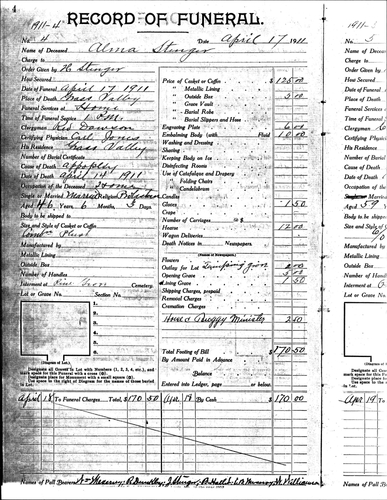 4
1911-4
RECORD OF FUNERAL.
No. 4 Date April 17 1911
Name of Deceased Alma Stinger
Charge to
Order Given by H Stinger
How Secured
Date of Funeral April 17 1911
Place of Death Grass Valley
Funeral Services at Home
Time of Funeral Service 1 P.M.
Clergyman Rev Dawson
Certifying Physician Carl Jones
His Residence Grass Valley
Number of Burial Certificate
Cause of Death Apoplexy
Date of Death April 14 1911
Occupation of the Deceased Home
Single or Married Married Religion
Aged 46 Years 6 Months 3 Days
Body to be shipped to
Size and Style of Casket or Coffin
Plush
Manufactured by
Metalic Lining
Outside Box
Number of Handles
Interment at Cemetery.
Lot or Grave No. Section No.
1.
2.
3.
4.
5.
6.
(Diagram of Lot.)
Designate all Graves in Lot with Numbers (1, 2, 3, 4, etc.), and mark space for this Funeral with a cross (x).
Designate place for Monument with a small square (□).
Use space to the right of Diagram for the names of those buried in Lot.
Price of Casket or Coffin $ 125 00
" Metalic Lining
" Outside Box 5 00
" Grave Vault
" Burial Robe
" Burial Slippers and Hose
Engraving Plate
Embalming Body (with Fluid 10 00
Washing and Dressing
Shaving
Keeping Body on Ice
Disinfecting Rooms
Use of Catafalque and Drapery
" Folding Chairs
" Candelabrum
Candles
Gloves 1 50
Crape
Number of Carriages @ $
Hearse 12 00
Wagon Deliveries
Death Notices in Newspapers
(Names of Newspapers)
Flowers
Outlay for Lot
Opening Grave
Lining Grave 1 50
Shipping Charges, prepaid
Removal Charges
Cremation Charges
Horse & Buggy Minister 2 50
Total Footing of Bill $ 170 50
By Amount Paid in Advance
Balance
Entered into Ledger, page or below.
April 18 To Funeral Charges Total, $ 170 50 Apr 19 By Cash $ 170 00
Names of Pall Bearers
1911-5
No. 5
Name of
Charge to
Order Given
How Secured
Date of
Place of
Funeral
Time of
Clergyman
Certifying
His Residence
Number of
Cause of
Date of
Occupation
Single or
Aged 59
Body to be
Size and
Manufactured
Metalic
Outside
Number of
Interment
Lot or
Apr 19
Names of